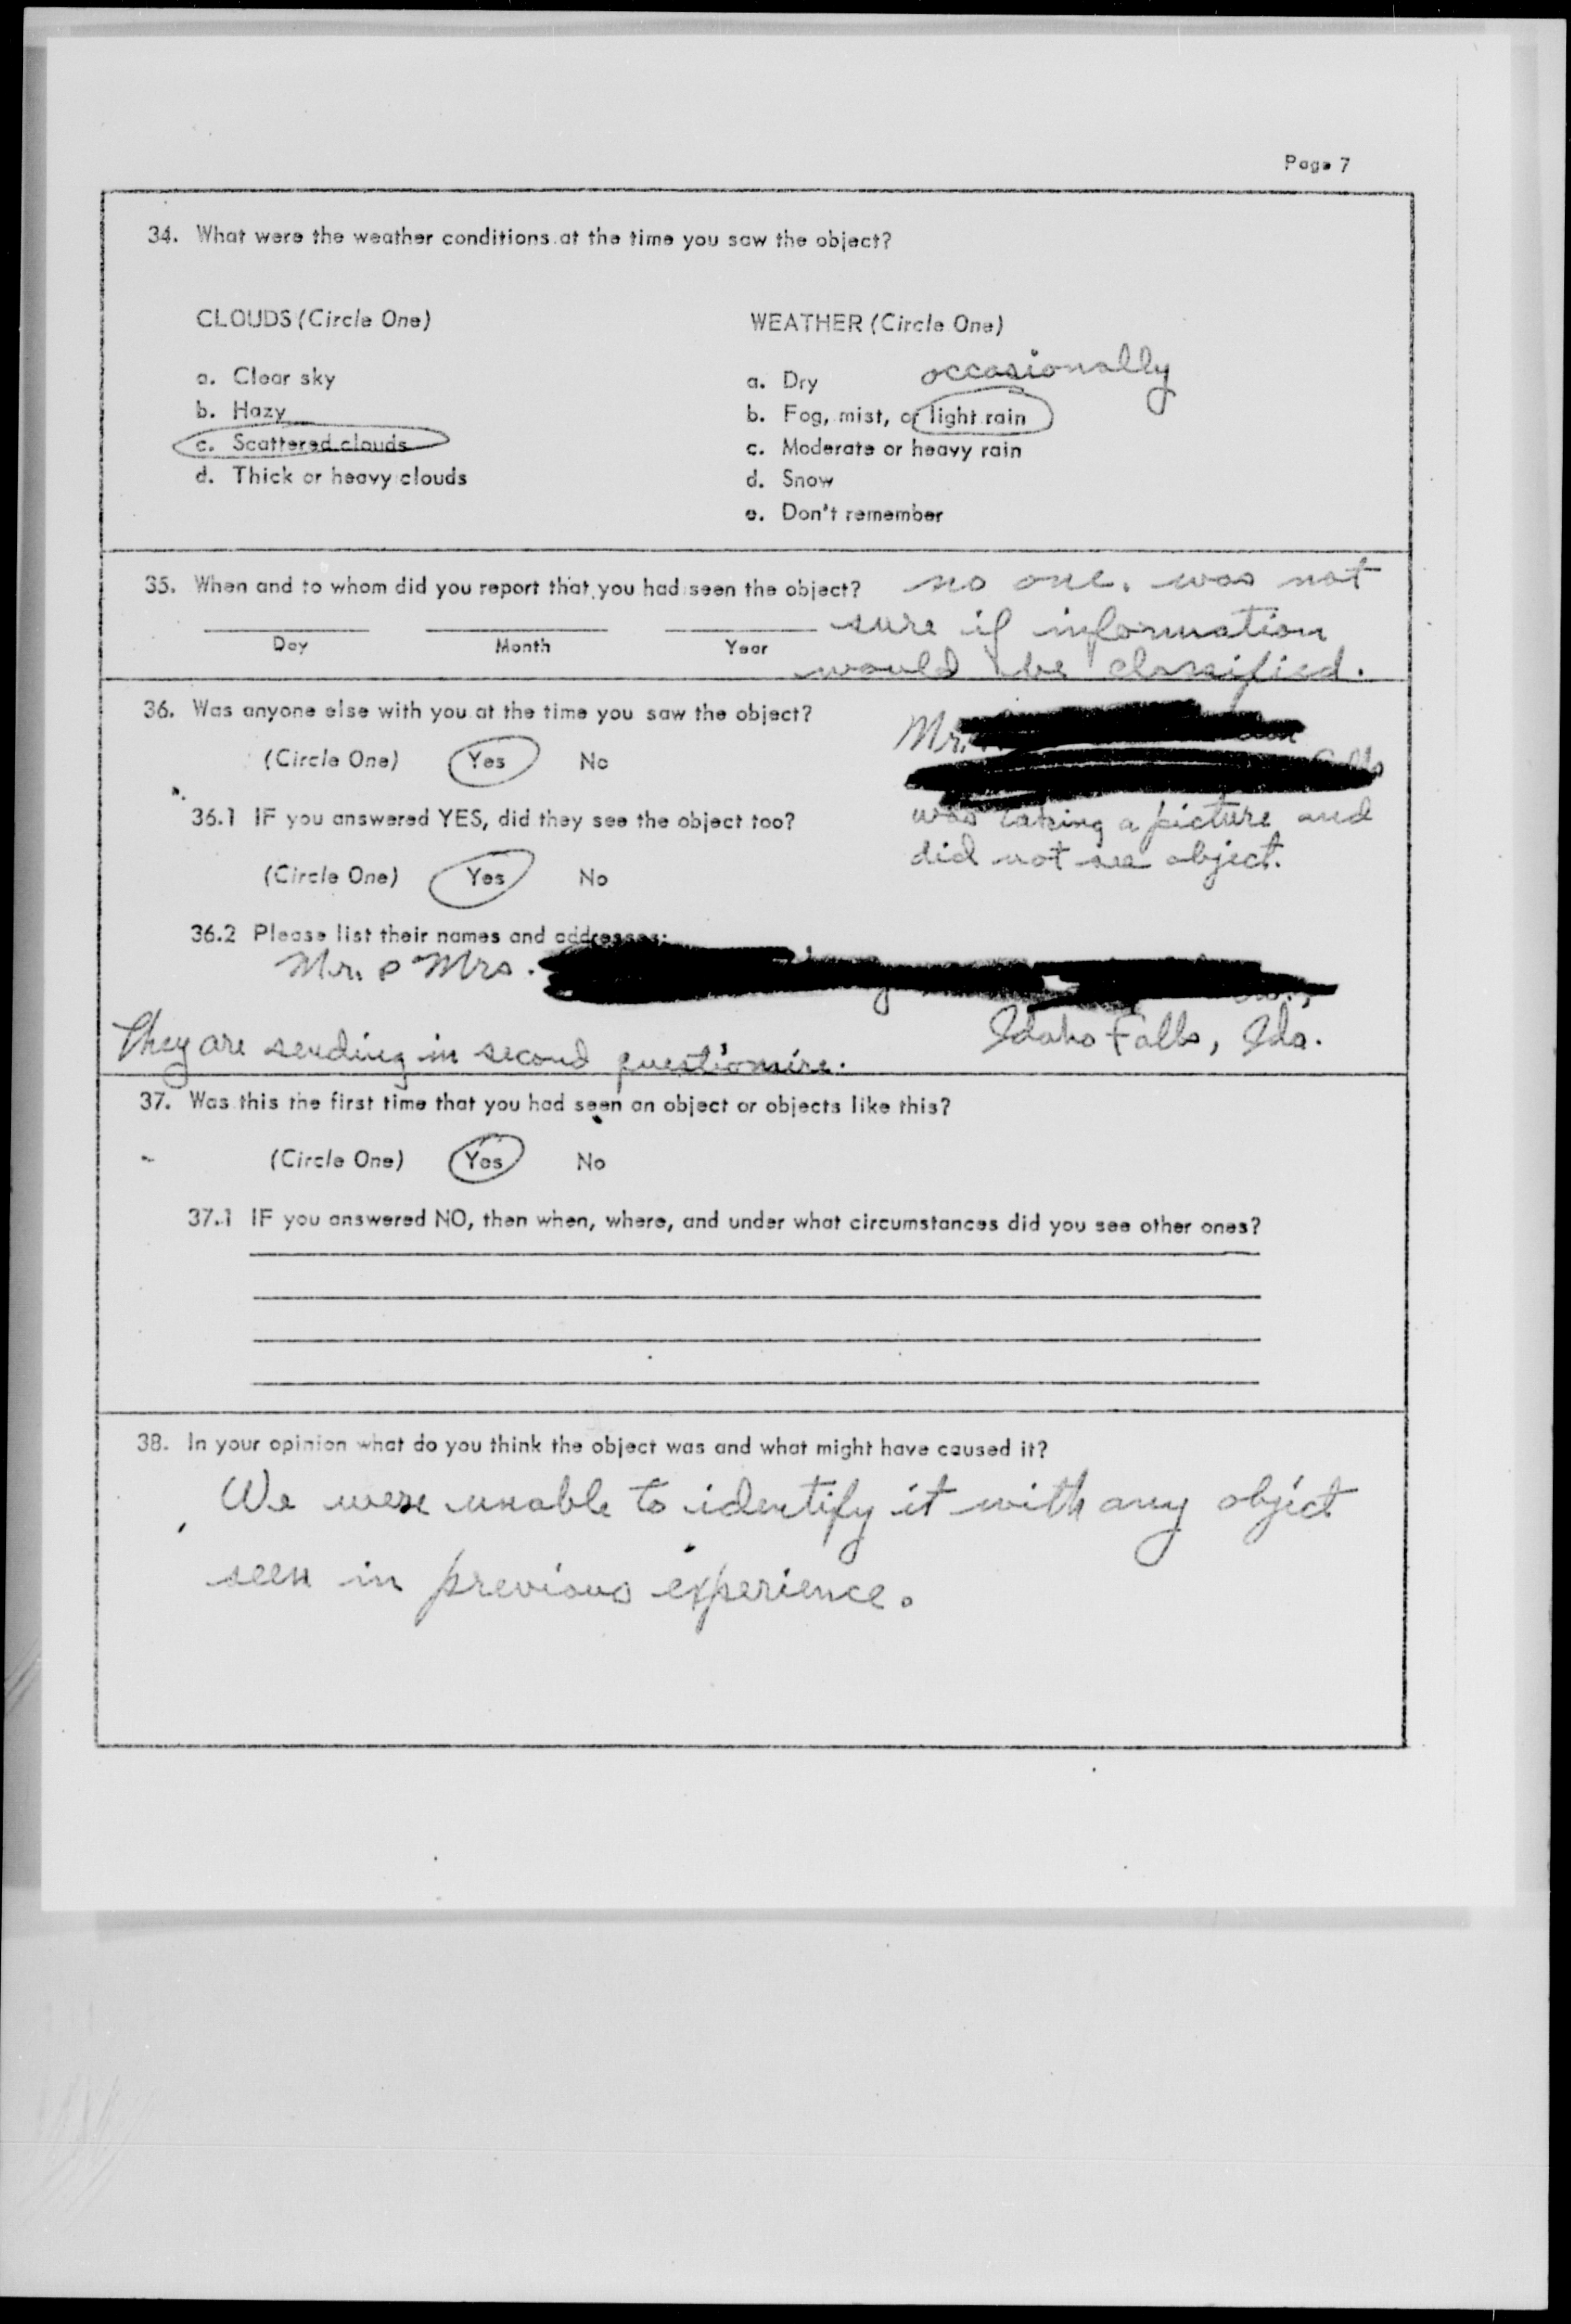 Page 7
34. What were the weather conditions at the time you saw the object?
CLOUDS (Circle One)
a. Clear sky
b. Hazy
c. Scattered clouds
d. Thick or heavy clouds
WEATHER (Circle One)
occasionally
a. Dry
b. Fog, mist, or light rain
c. Moderate or heavy rain
d. Snow
e. Don't remember
35. When and to whom did you report that you had seen the object? no one. was not
sure if information
Day Month Year
would be classified.
36. Was anyone else with you at the time you saw the object?
(Circle One) Yes No
Mr.
was taking a picture and
did not see object.
36.1 IF you answered YES, did they see the object too?
(Circle One) Yes No
36.2 Please list their names and addresses:
Mr. & Mrs.
Idaho Falls, Ida.
They are sending in second questionire.
37. Was this the first time that you had seen an object or objects like this?
(Circle One) Yes No
37.1 IF you answered NO, then when, where, and under what circumstances did you see other ones?
38. In your opinion what do you think the object was and what might have caused it?
We were unable to identify it with any object
seen in previous experience.